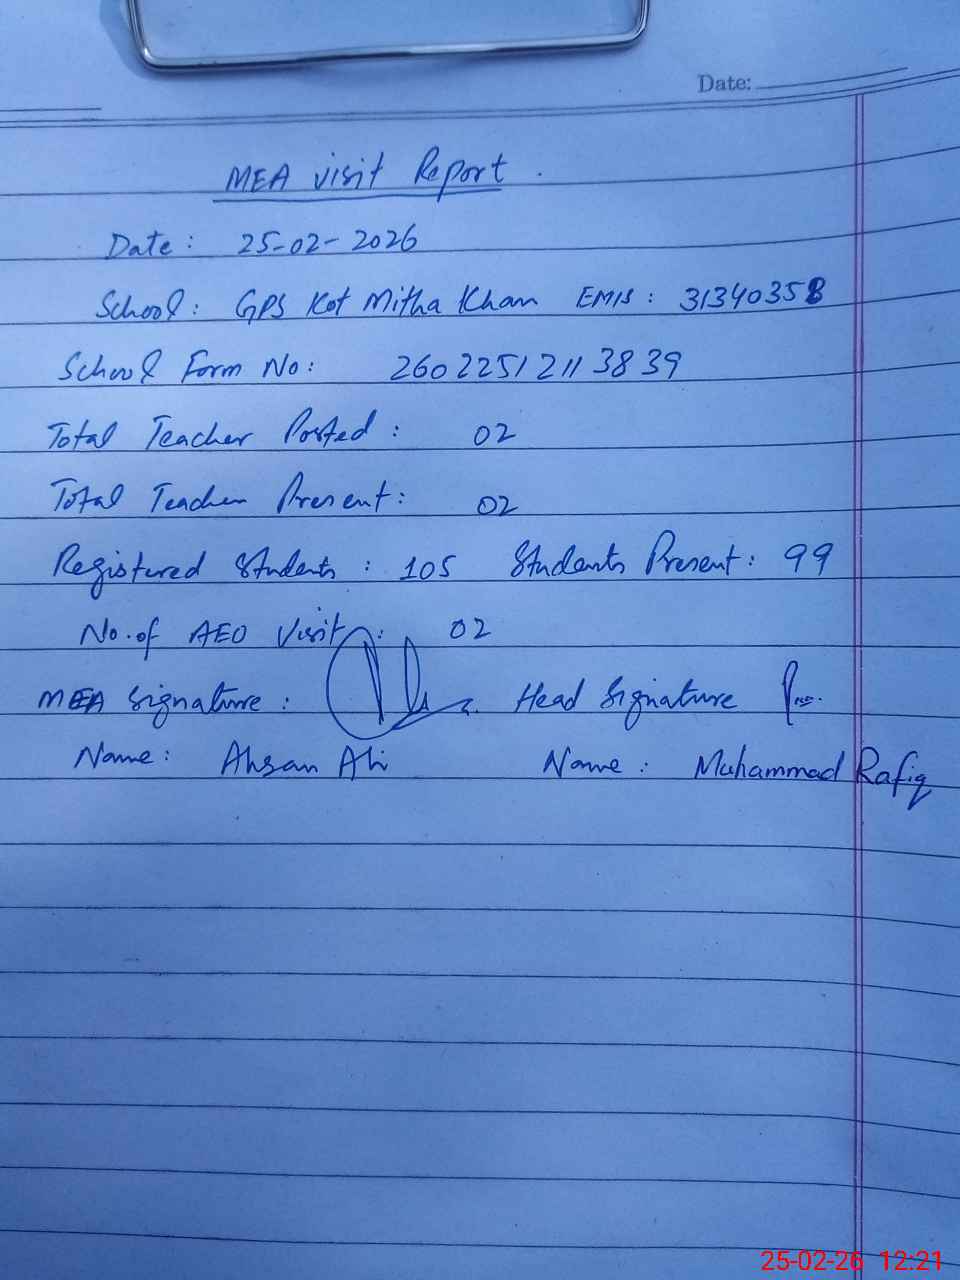 Date:
MEA visit Report.
Date: 25-02-2026
School: GPS Kot Mitha Khan EMIS: 31340358
School Form No: 260225121113839
Total Teacher Posted: 02
Total Teacher Present: 02
Registered Students: 105 Students Present: 99
No. of AEO Visit: 02
MEA Signature: Head Signature
Name: Ahsan Ali Name: Muhammad Rafiq
25-02-26 12:21